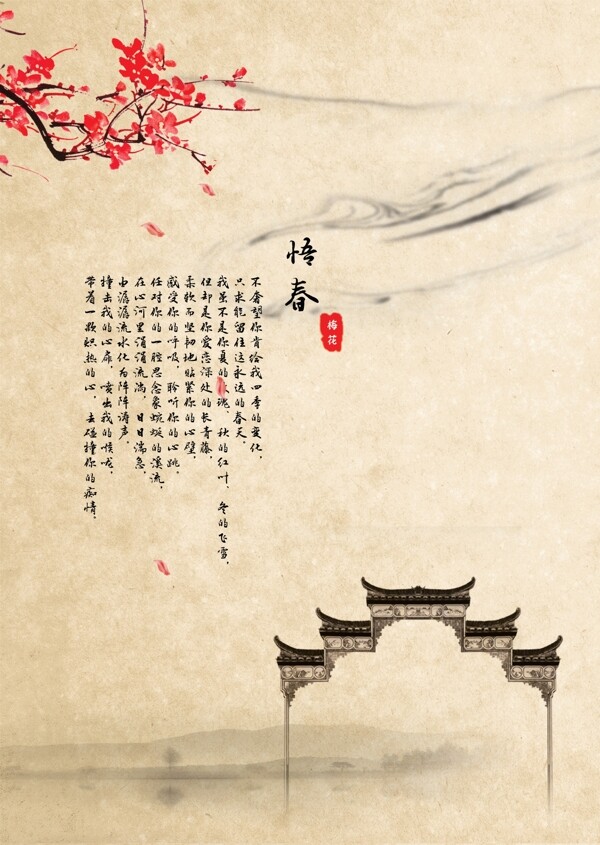 悟春
梅花
不奢望你肯给我四季的变化,
只求能留住这永远的春天,
我虽不是你夏的瑰、秋的红叶、冬的飞雪,
但却是你爱恋深处的长青藤,
柔软而坚韧地贴紧你的心壁,
感受你的呼吸,聆听你的心跳。
任对你的一腔思念象蜿蜒的溪流,
在心河里涓涓流淌,日日湍急,
由潺潺流水化为阵阵涛声,
撞击我的心扉,喷出我的喉咙,
带着一颗炽热的心,去碰撞你的痴情。